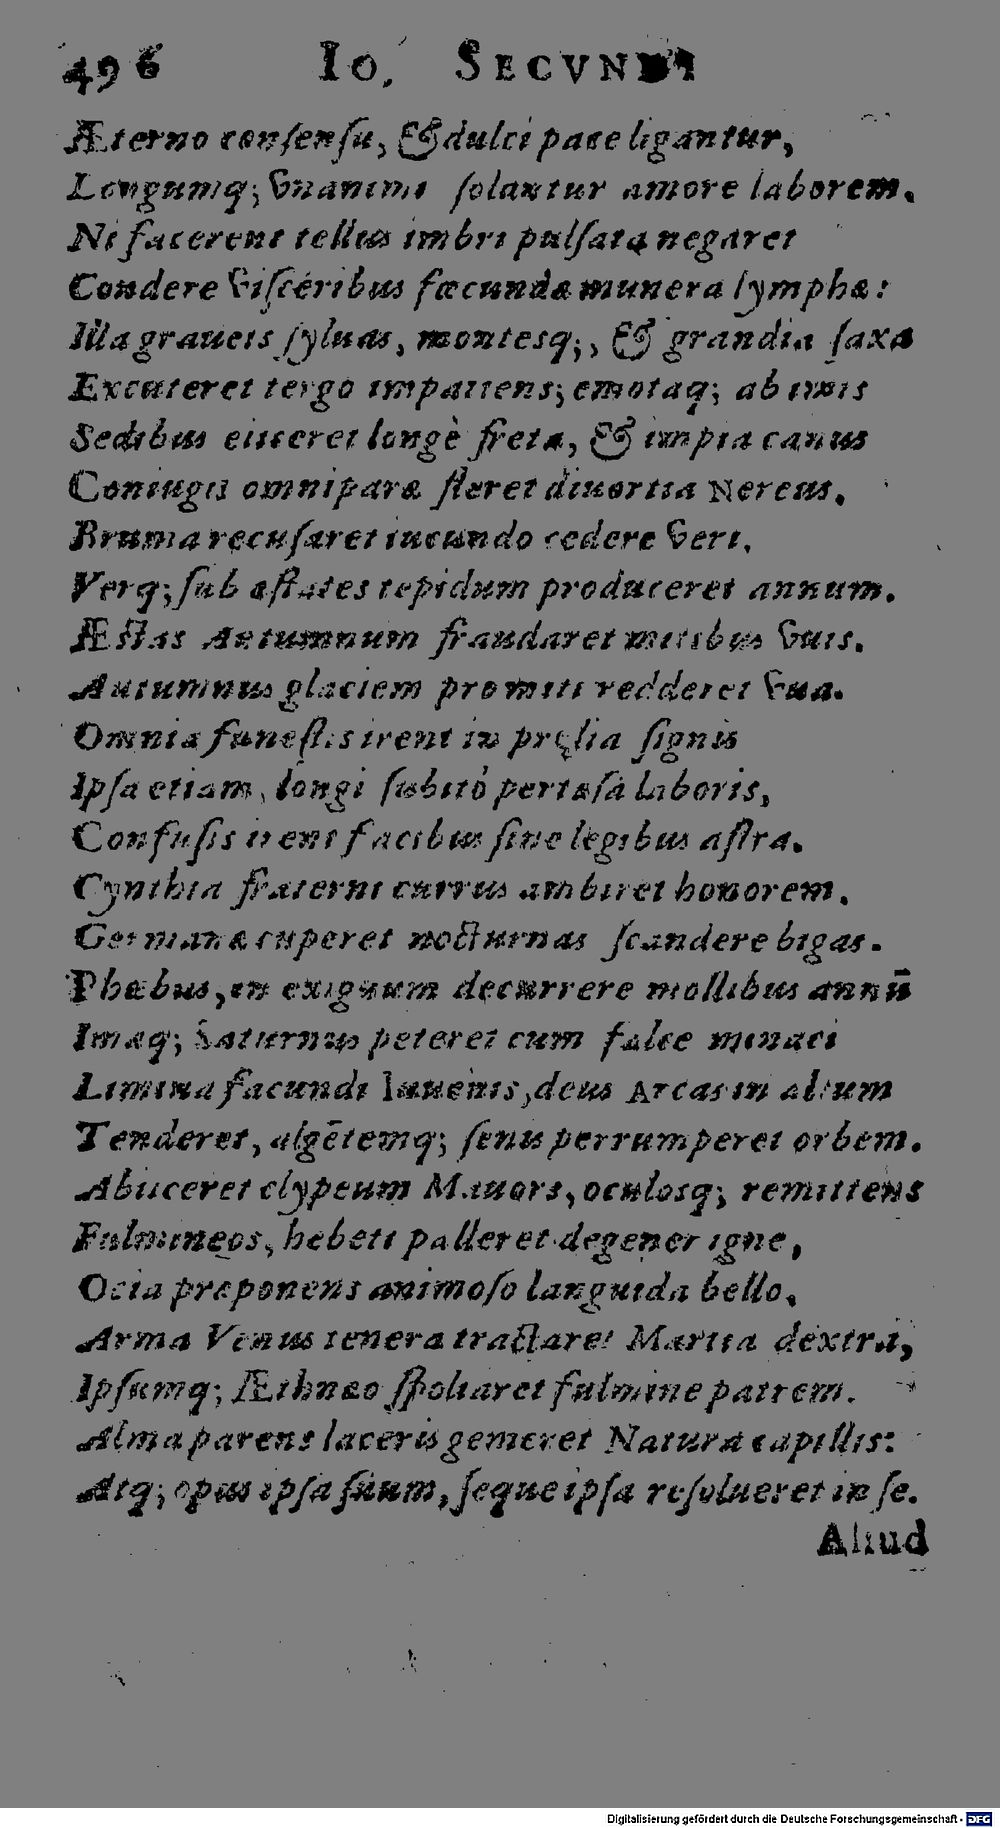 496 IO. SECVNDI
Æterno consensu, & dulci pace ligantur,
Longumq; vnanimi solantur amore laborem.
Ni facerent tellus imbri pulsata negaret
Condere visceribus fœcundæ munera lymphæ:
Illa graueis syluas, montesq;, & grandia saxa
Excuteret tergo impatiens; emotaq; ab imis
Sedibus eiiceret longè freta, & impia canus
Coniugis omniparæ fleret diuortia Nereus.
Bruma recusaret iucundo cedere veri.
Verq; sub æstates tepidum produceret annum.
Æstas Autumnum fraudaret mitibus vuis.
Autumnus glaciem promiti redderet vua.
Omnia funestis irent in prælia signis
Ipsa etiam, longi subitò pertæsa laboris,
Confusis irent facibus sine legibus astra.
Cynthia fraterni currus ambiret honorem.
Germanæ cuperet nocturnas scandere bigas.
Phœbus, in exiguum decurrere mollibus annū
Imaq; Saturnus peteret cum falce minaci
Limina facundi Iuuenis, deus Arcas in altum
Tenderet, algētemq; senis perrumperet orbem.
Abiiceret clypeum Mauors, oculosq; remittens
Fulmineos, hebeti palleret degener igne,
Ocia præponens animoso languida bello.
Arma Venus tenera tractaret Martia dextra,
Ipsumq; Æthnæo spoliaret fulmine patrem.
Alma parens laceris gemeret Natura capillis:
Atq; opus ipsa suum, seque ipsa resolueret in se.
Aliud
Digitalisierung gefördert durch die Deutsche Forschungsgemeinschaft - DFG